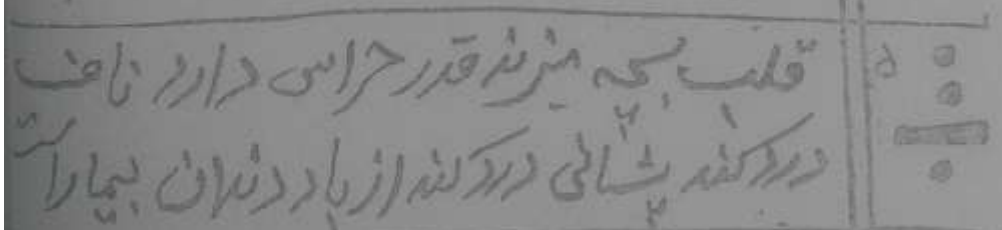 قلب بچه میزند قدر حراس دارد ناف ۵
درد کند پشانی درد کند از باد دندان بیمار است